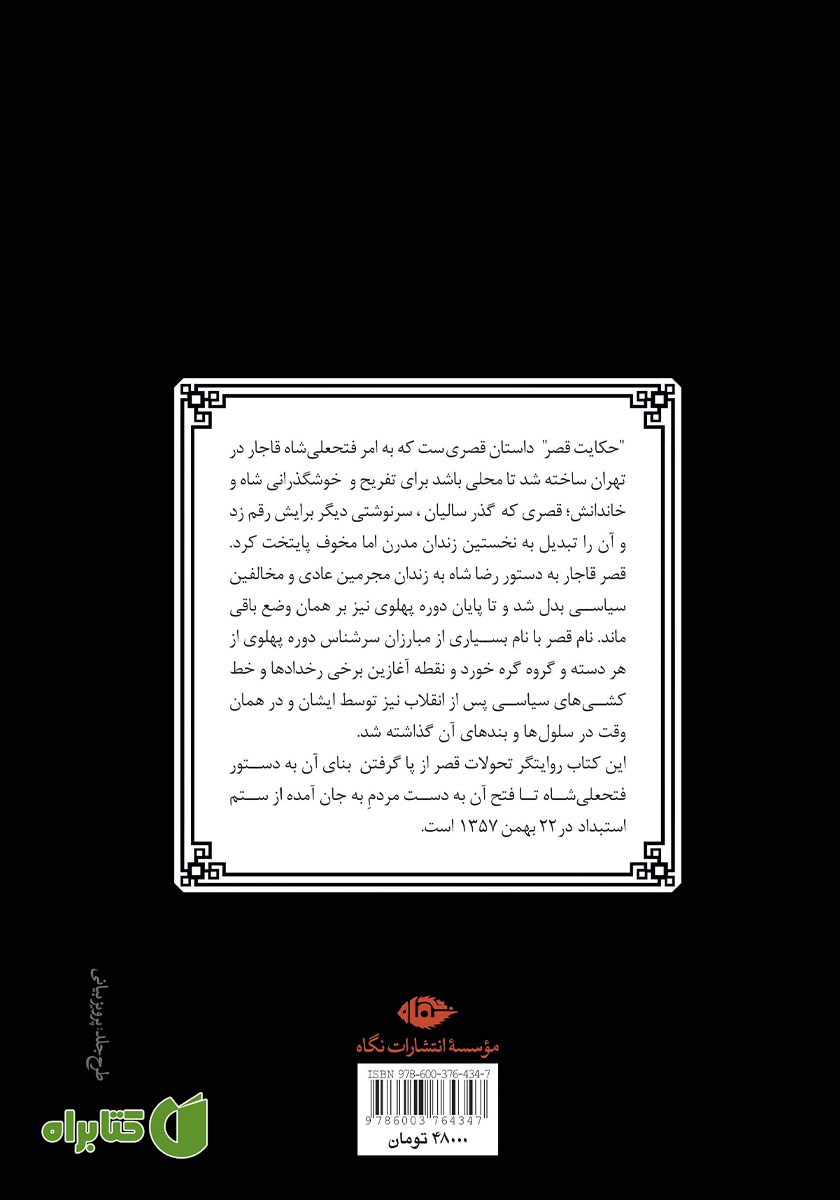 "حکایت قصر" داستان قصری‌ست که به امر فتحعلی‌شاه قاجار در
تهران ساخته شد تا محلی باشد برای تفریح و خوشگذرانی شاه و
خاندانش؛ قصری که گذر سالیان ، سرنوشتی دیگر برایش رقم زد
و آن را تبدیل به نخستین زندان مدرن اما مخوف پایتخت کرد.
قصر قاجار به دستور رضا شاه به زندان مجرمین عادی و مخالفین
سیاسـی بدل شد و تا پایان دوره پهلوی نیز بر همان وضع باقی
ماند. نام قصر با نام بسـیاری از مبارزان سرشناس دوره پهلوی از
هر دسته و گروه گره خورد و نقطه آغازین برخی رخدادها و خط
کشـی‌های سیاسـی پس از انقلاب نیز توسط ایشان و در همان
وقت در سلول‌ها و بندهای آن گذاشته شد.
این کتاب روایتگر تحولات قصر از پا گرفتن بنای آن به دسـتور
فتحعلی‌شـاه تـا فتح آن به دست مردمِ به جان آمده از سـتم
استبداد در ۲۲ بهمن ۱۳۵۷ است.
طرح جلد: پرویز بیانی
نگاه
مؤسسهٔ انتشارات نگاه
ISBN 978-600-376-434-7
9 786003 764347
۴۸۰۰۰ تومان
کتابراه